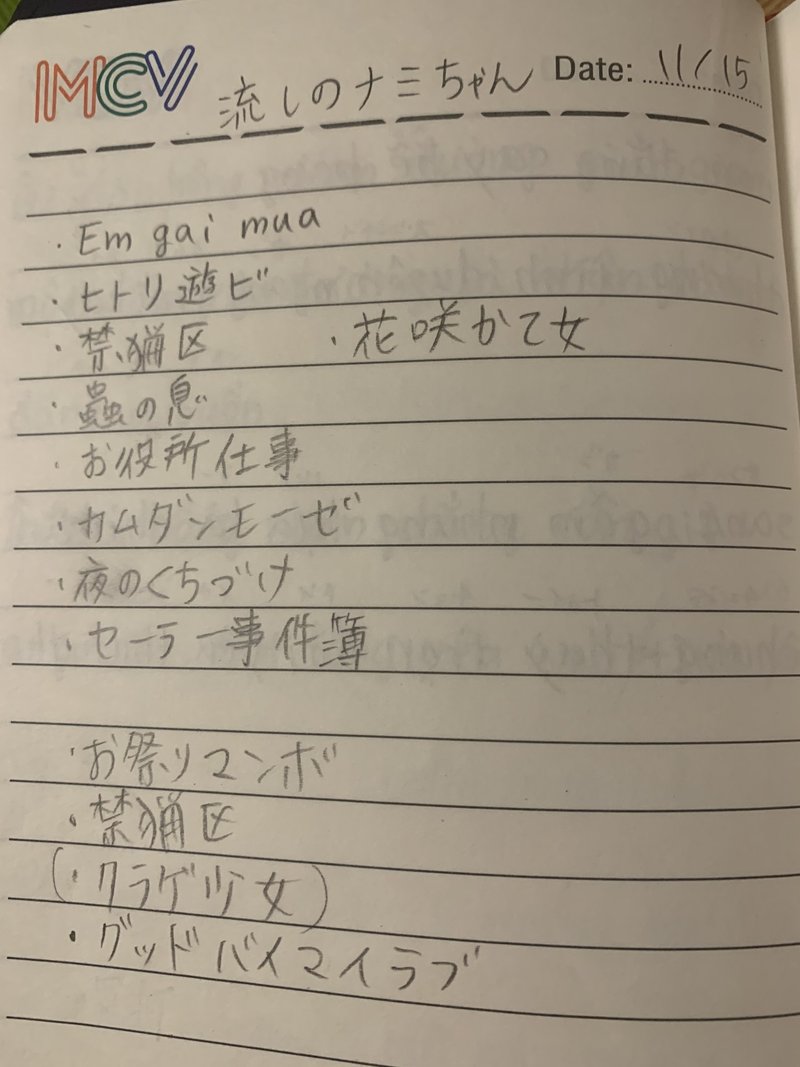 MCV 流しのナミちゃん Date: 11/15
・Em gai mua
・ヒトリ遊ビ
・禁猟区 ・花咲かて女
・蟲の息
・お役所仕事
・カムダンモーゼ
・夜のくちづけ
・セーラー事件簿
・お祭りマンボ
・禁猟区
(・クラゲ少女)
・グッドバイマイラブ